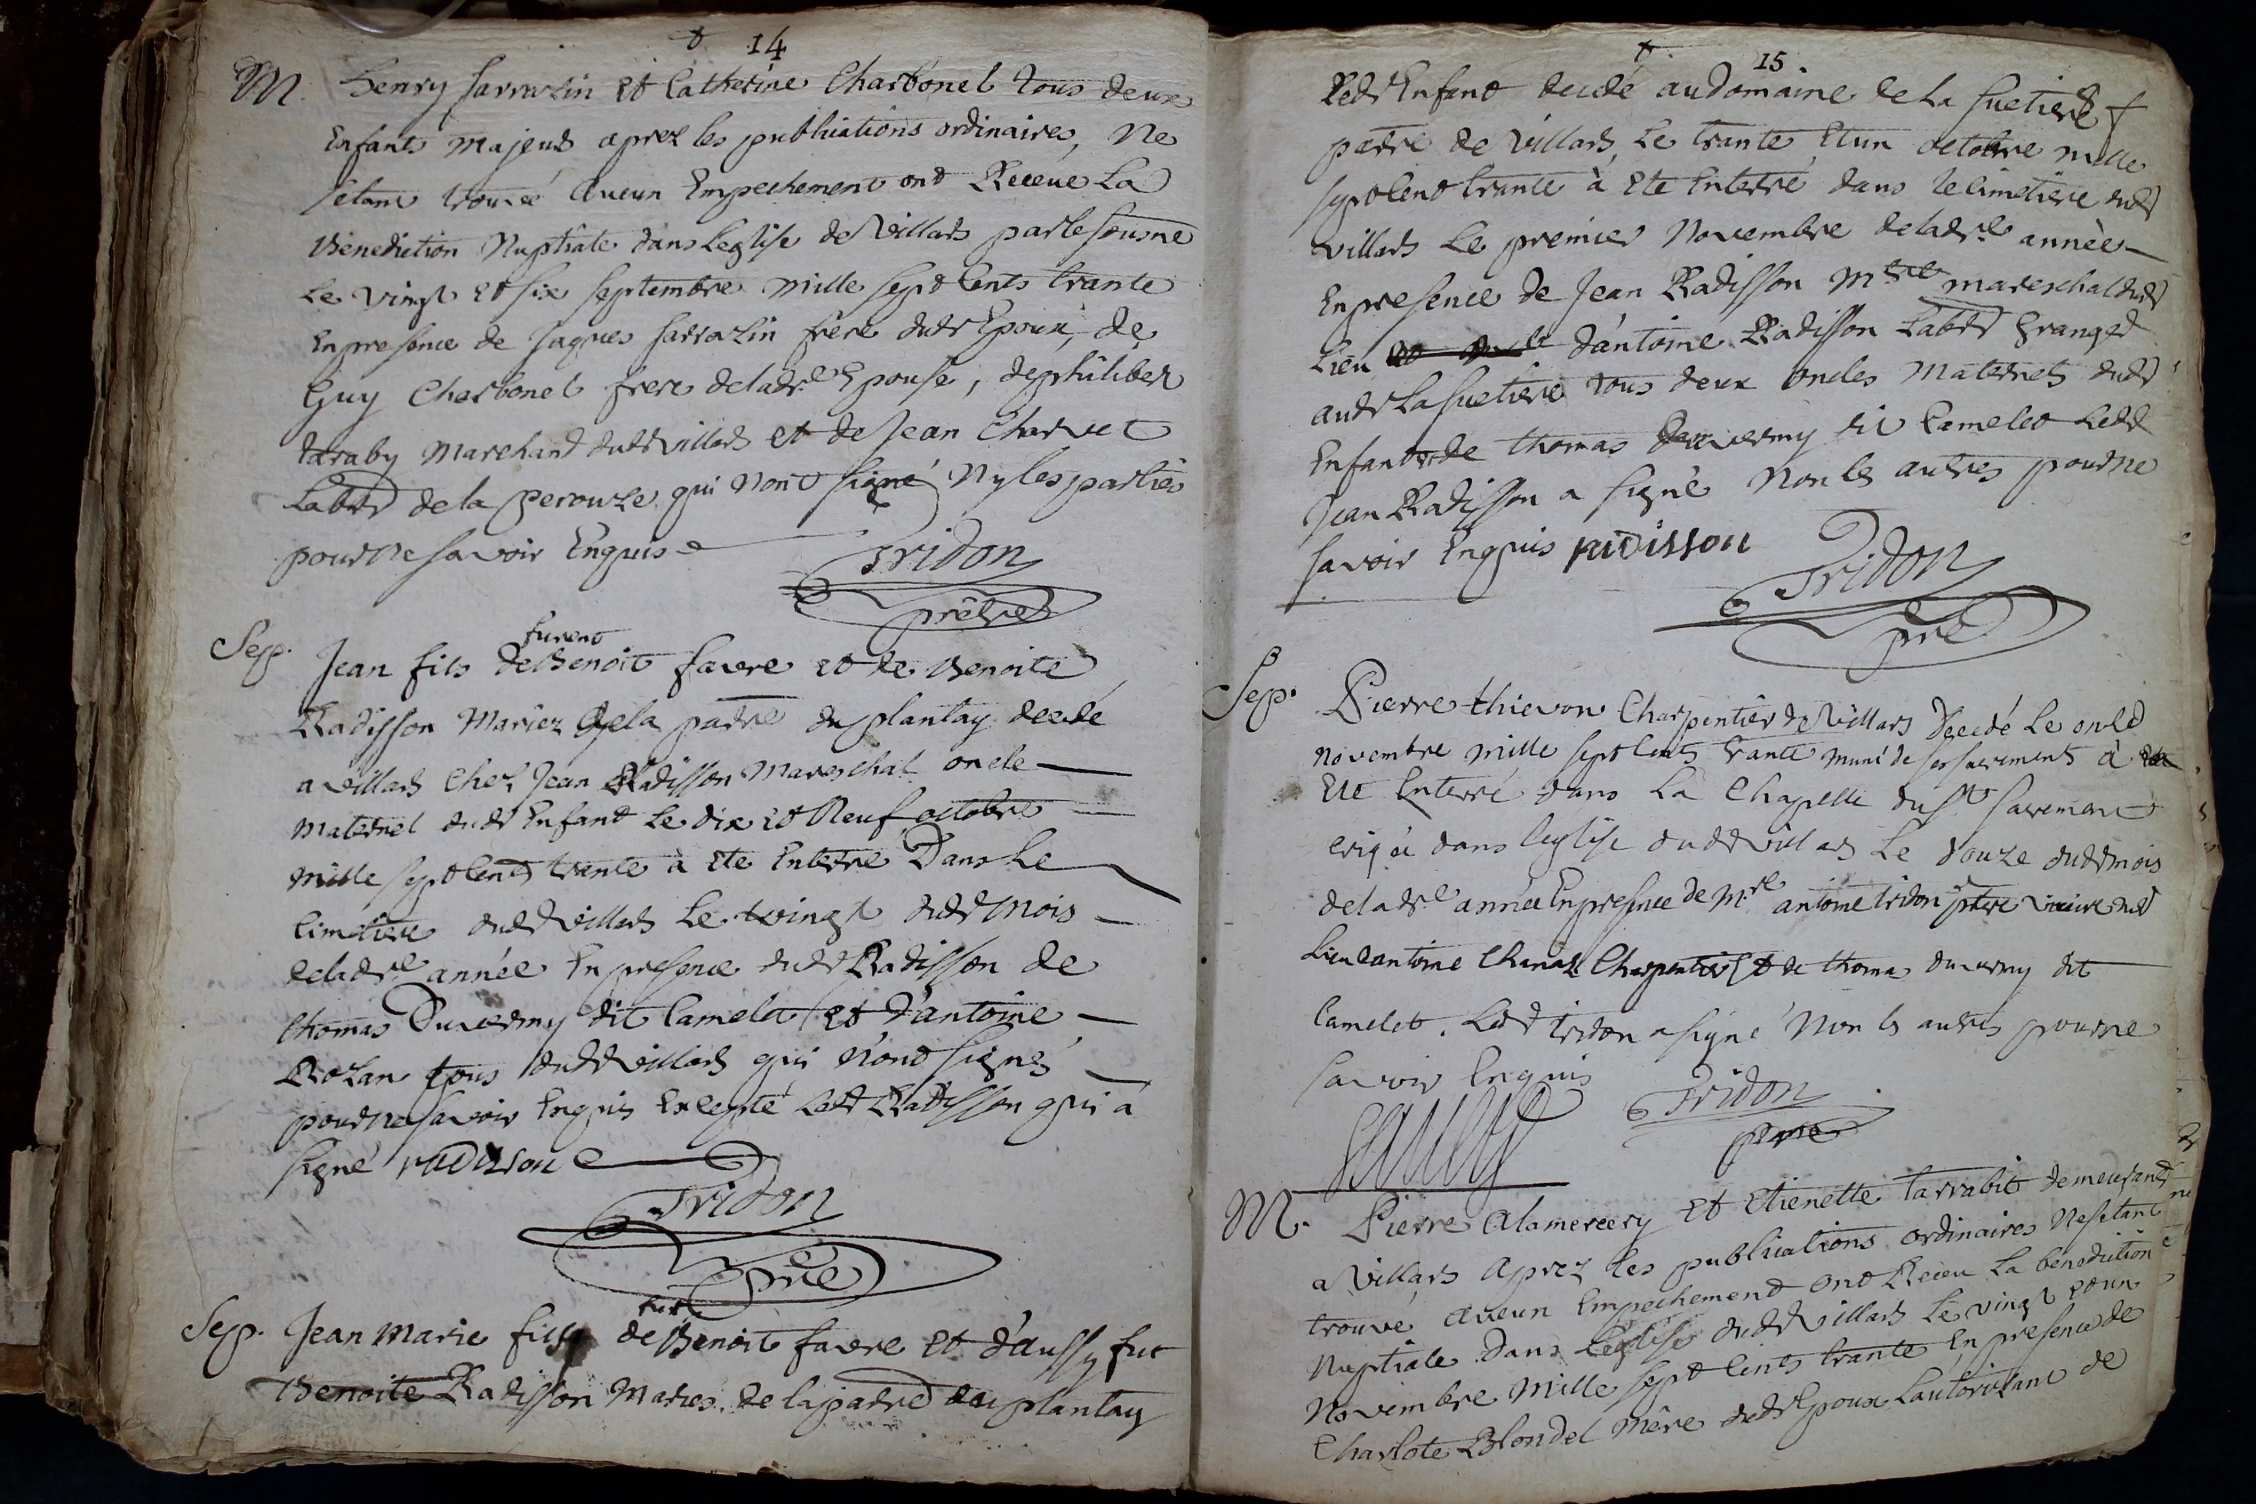 14
M. henry sarrazin et Catherine Charbonel tous deux
Enfants majeurs aprez les publications ordinaires, Ne
setant trouvé Aucun Empechement ont Receue La
Benediction Nuptiale dans Leglise de Villars par le sousné
Le vingt et six septembre mille sept Cents trante
En presence de Jaques sarrazin frere dudt Epoux, de
Guy Charbonel frere deladte Epouse, de philiber
taraby Marchand dudt villars et de Jean Charvet
Labr de la perouze qui n'ont signé Ny les parties
pour ne savoir Enquis
Tridon
prêtre
furent
Sep. Jean fils de Benoit favre et de Benoite
Radisson Mariez de la padre du plantay decedé
a villars Chez Jean Radisson Mareschal oncle
maternel dudt Enfant Le dix et Neuf octobre
mille sept Cents trante à Ete Enterré Dans Le
Cimetiere dudt villars Le vingt dudt mois
deladte année En presence dudt Radisson de
thomas Duvermy dit Camelet et d'antoine
Rozan tous dudt villars qui n'ont signés
pour ne savoir Enquis Excepté Ledt Radisson qui a
signé radisson
Tridon
pre
fut
Sep. Jean Marie fils de Benoit favre et d'aussy fut
Benoite Radisson Mariés de la padre du plantay
15
Ledt Enfant decedé au Domaine de La suetiere
padre de Villars Le trante Et un octobre mille
sept Cent trante à Ete Enterré dans le Cimetiere dudt
villars Le premier Novembre deladte année
En presence de Jean Radisson Mtre mareschal dudt
Lieu d'antoine Radisson Labr Granger
audt La suetiere tous deux oncles Maternels dudt
Enfant de thomas Duvermy dit Camelet Ledt
Jean Radisson a signé Non les autres pour ne
savoir Enquis radisson
Tridon
pre
Sep. Pierre thievon Charpentier de Villars Decedé Le onze
novembre mille sept Cents trante muni de ses sacrements à
Eté Enterré dans La Chapelle du St sacrement
erigée dans leglise dudt villars Le douze dudt mois
deladte année En presence de Mre antoine tridon ptre vicaire dudt
Lieu d'antoine Charpentier Et de thoma duvermy dit
Camelet. Ledt tridon a signé Non les autres pour ne
savoir Enquis
Tridon
ptre
M. Pierre Alamercery Et Etienette tarrabit demeurants
a Villars Aprez les publications ordinaires Ne setant
trouvé Aucun Empechement ont Receu La benediction
Nuptiale Dans Leglise dudt villars Le vingt et un
Novembre Mille sept Cents trante En presence de
Charlote Blondel mère dudt Epoux Lautorizant de